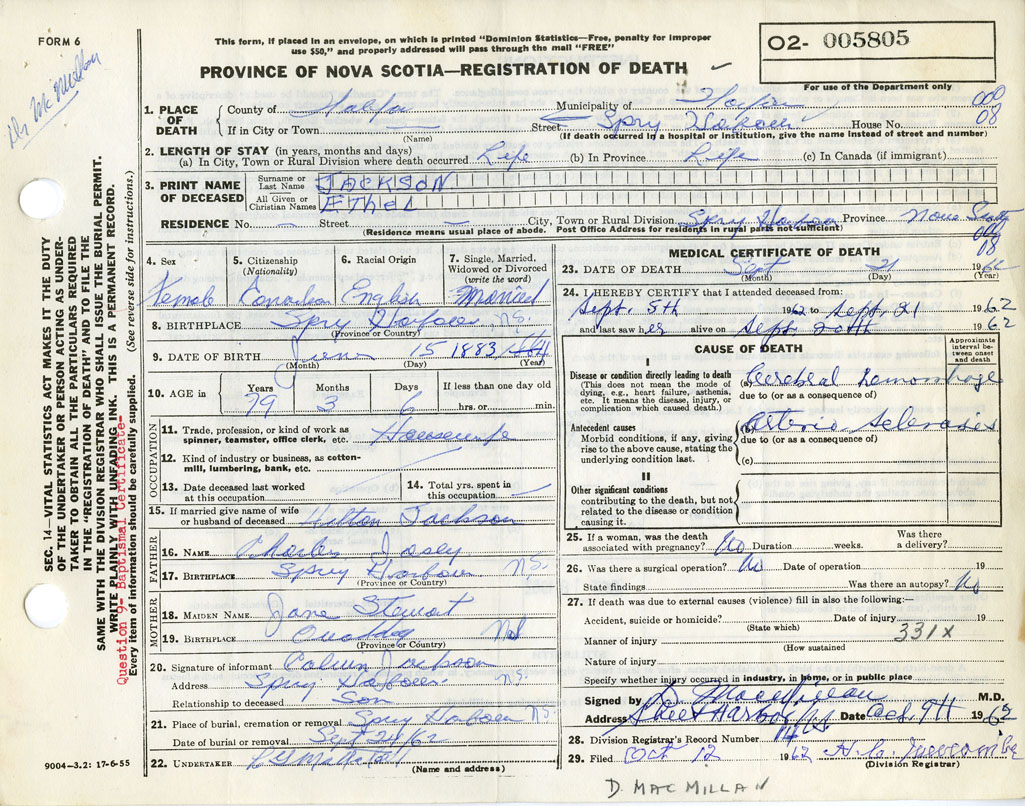 FORM 6
Dr McMillan
This form, if placed in an envelope, on which is printed "Dominion Statistics—Free, penalty for improper
use $50," and properly addressed will pass through the mail "FREE"
PROVINCE OF NOVA SCOTIA—REGISTRATION OF DEATH
O2- 005805
For use of the Department only
1. PLACE OF DEATH
County of Halifax Municipality of Halifax 000
If in City or Town — Street Spry Harbour House No. 08
(Name) (If death occurred in a hospital or institution, give the name instead of street and number)
2. LENGTH OF STAY (in years, months and days)
(a) In City, Town or Rural Division where death occurred Life (b) In Province Life (c) In Canada (if immigrant)
3. PRINT NAME OF DECEASED
Surname or Last Name JACKSON
All Given or Christian Names ETHEL
RESIDENCE No. — Street — City, Town or Rural Division Spry Harbour Province Nova Scotia
(Residence means usual place of abode. Post Office Address for residents in rural parts not sufficient)
000
08
4. Sex Female
5. Citizenship (Nationality) Canadian
6. Racial Origin English
7. Single, Married, Widowed or Divorced (write the word) Married
8. BIRTHPLACE Spry Harbour, N.S.
(Province or Country)
9. DATE OF BIRTH June 15 1883
(Month) (Day) (Year)
10. AGE in Years Months Days If less than one day old
79 3 6 hrs. or min.
OCCUPATION
11. Trade, profession, or kind of work as spinner, teamster, office clerk, etc. Housewife
12. Kind of industry or business, as cotton-mill, lumbering, bank, etc.
13. Date deceased last worked at this occupation
14. Total yrs. spent in this occupation —
15. If married give name of wife or husband of deceased Hilton Jackson
FATHER
16. NAME Charles Josey
17. BIRTHPLACE Spry Harbour N.S.
(Province or Country)
MOTHER
18. MAIDEN NAME Jane Stewart
19. BIRTHPLACE N.S
(Province or Country)
20. Signature of informant Calvin Jackson
Address Spry Harbour N.S.
Relationship to deceased Son
21. Place of burial, cremation or removal Spry Harbour N.S.
Date of burial or removal Sept 24/62
22. UNDERTAKER
(Name and address)
9004-3.2: 17-6-55
MEDICAL CERTIFICATE OF DEATH
23. DATE OF DEATH Sept 21 1962
(Month) (Day) (Year)
24. I HEREBY CERTIFY that I attended deceased from:
Sept. 5th 1962 to Sept. 21 1962
and last saw her alive on Sept 20th 1962
CAUSE OF DEATH
Approximate interval between onset and death
I
Disease or condition directly leading to death
(This does not mean the mode of dying, e.g., heart failure, asthenia, etc. It means the disease, injury, or complication which caused death.)
(a) Cerebral Hemorrhage
due to (or as a consequence of)
Antecedent causes
Morbid conditions, if any, giving rise to the above cause, stating the underlying condition last.
(b) Arterio Sclerosis
due to (or as a consequence of)
(c)
II
Other significant conditions
contributing to the death, but not related to the disease or condition causing it.
25. If a woman, was the death associated with pregnancy? No Duration weeks. Was there a delivery?
26. Was there a surgical operation? No Date of operation 19
State findings Was there an autopsy? No
27. If death was due to external causes (violence) fill in also the following:—
Accident, suicide or homicide? Date of injury 19
(State which)
331X
Manner of injury
(How sustained
Nature of injury
Specify whether injury occurred in industry, in home, or in public place
Signed by D. MacMillan M.D.
Address Sheet Harbour NS Date Oct. 9th 1962
28. Division Registrar's Record Number
29. Filed Oct 12 1962
(Division Registrar)
D. MACMILLAN
SEC. 14—VITAL STATISTICS ACT MAKES IT THE DUTY
OF THE UNDERTAKER OR PERSON ACTING AS UNDER-
TAKER TO OBTAIN ALL THE PARTICULARS REQUIRED
IN THE "REGISTRATION OF DEATH" AND TO FILE THE
SAME WITH THE DIVISION REGISTRAR WHO SHALL ISSUE THE BURIAL PERMIT.
WRITE PLAINLY WITH UNFADING INK. THIS IS A PERMANENT RECORD.
Question 9- Baptismal Certificate-
Every item of information should be carefully supplied. (See reverse side for instructions.)